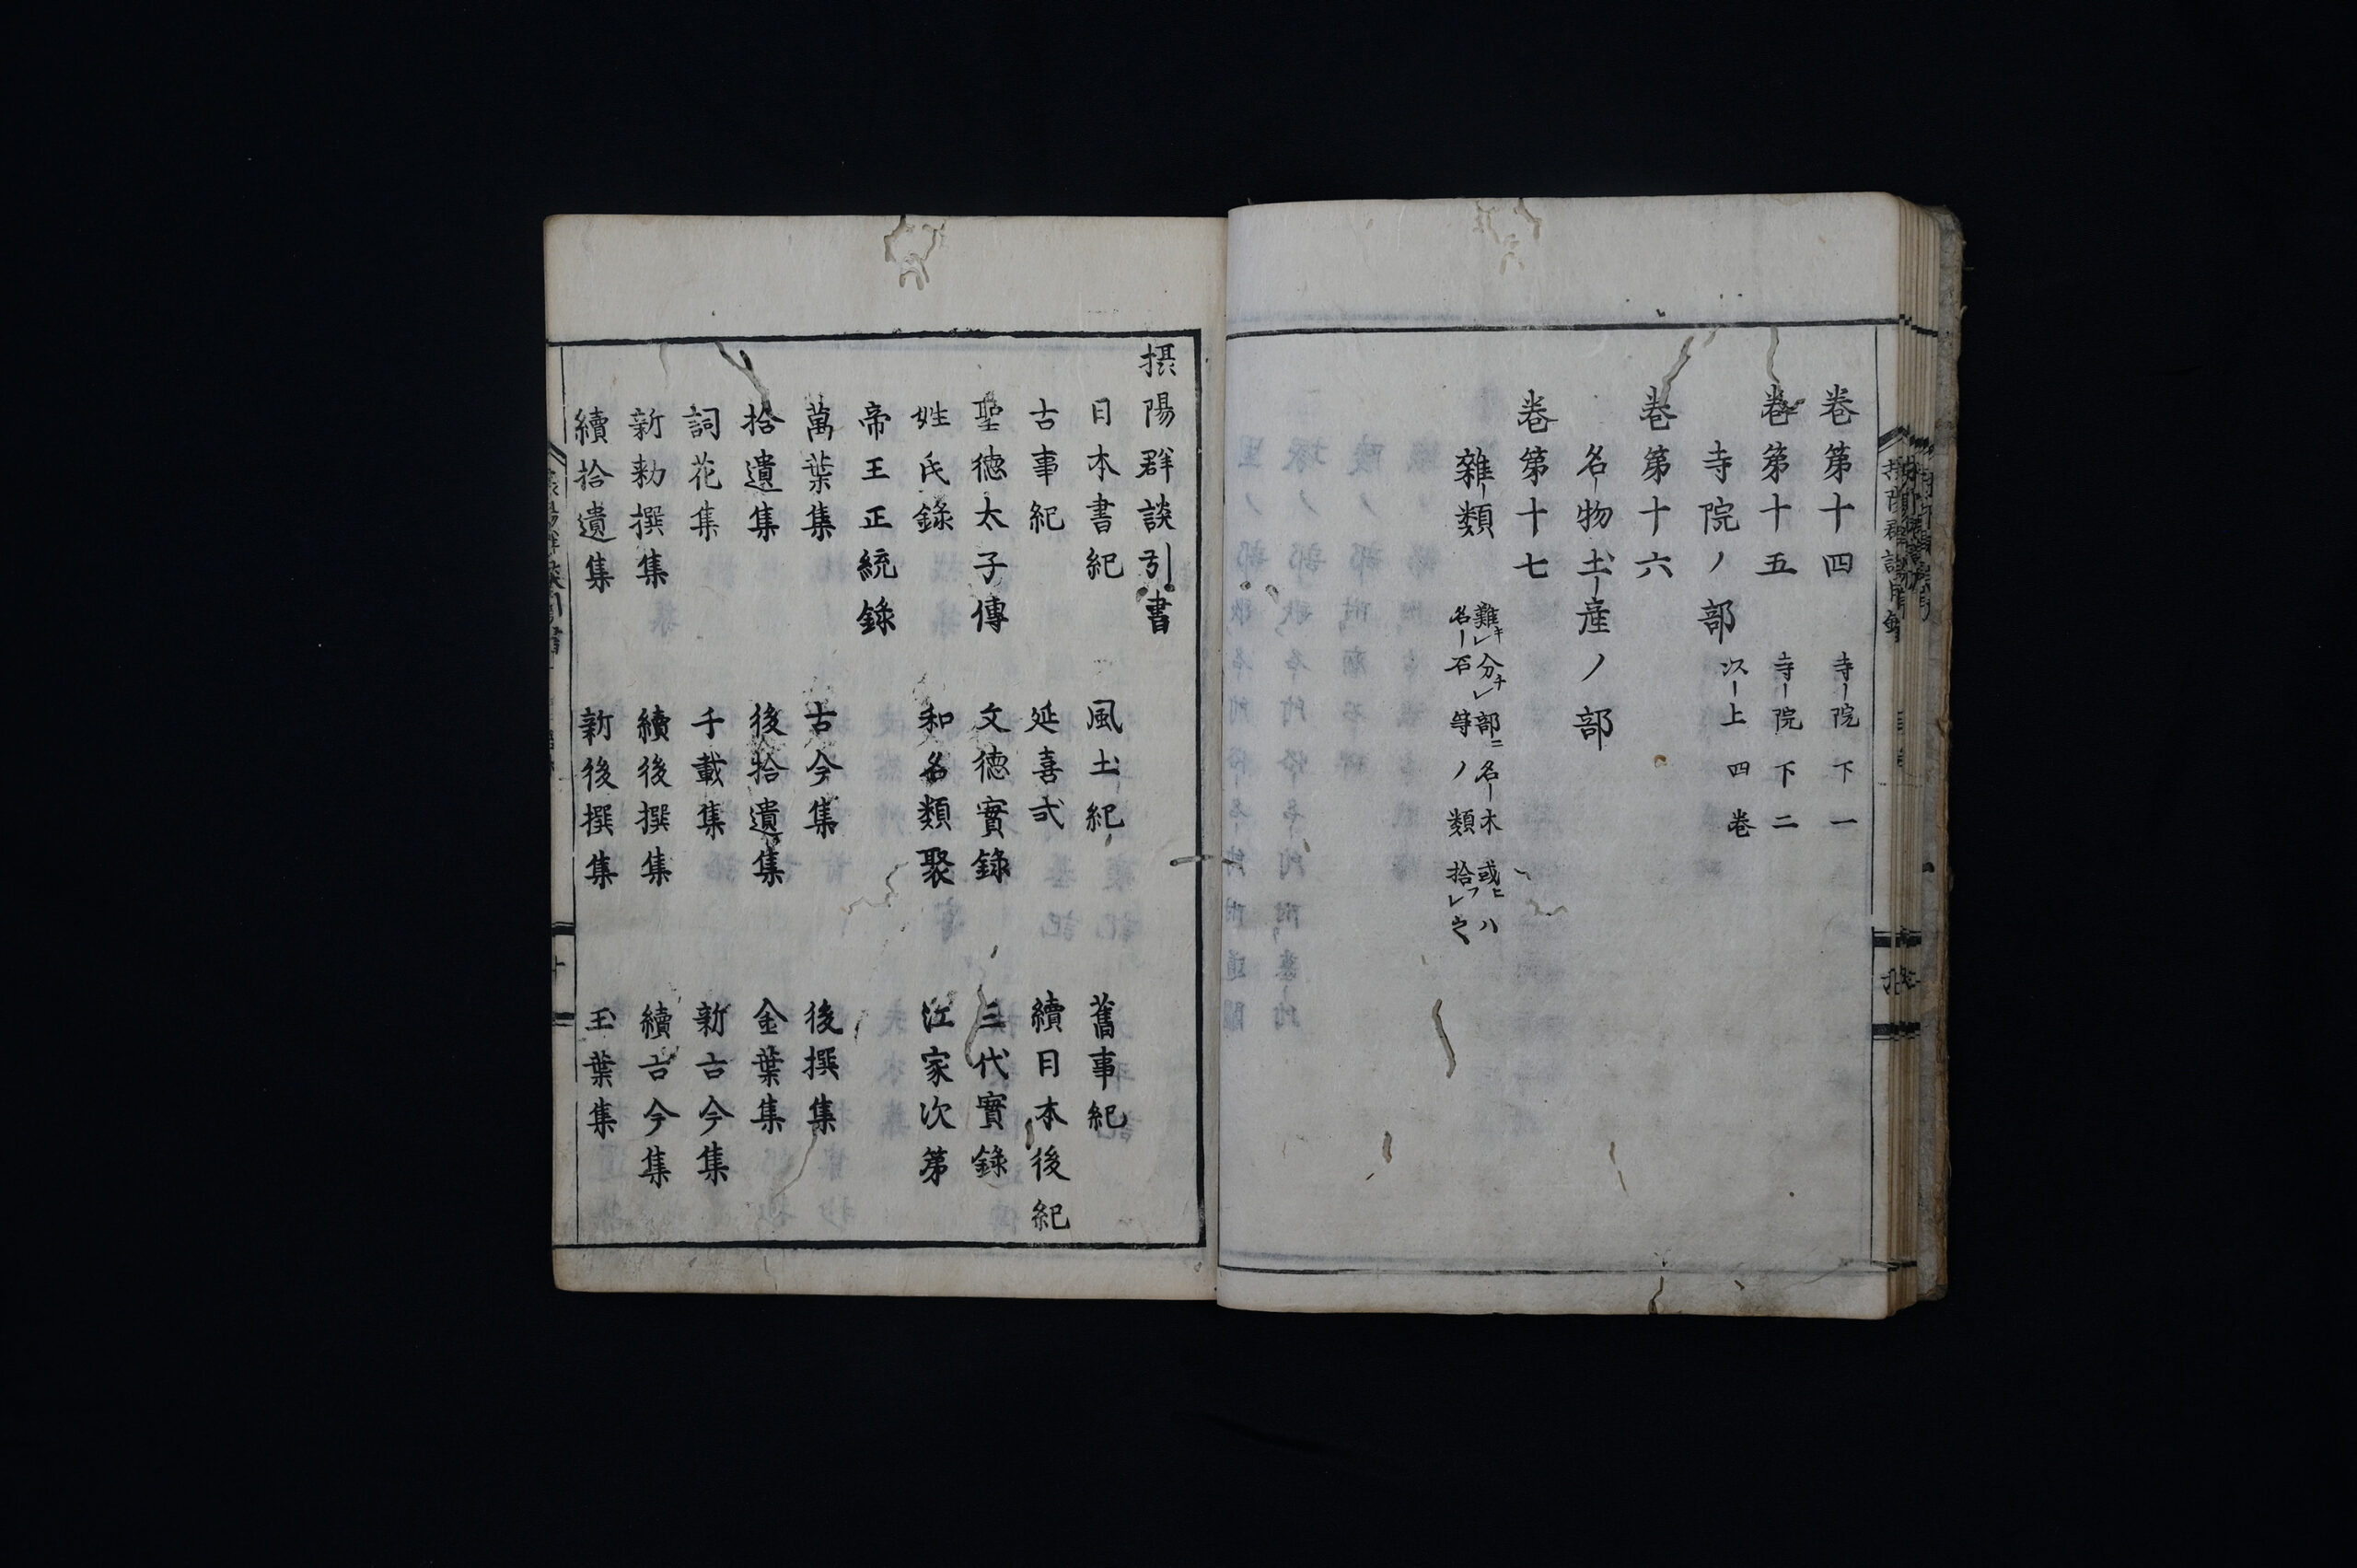 卷第十四　寺院下一
卷第十五　寺院下二
寺院ノ部　次上四卷
卷第十六
名物土産ノ部
卷第十七
雜類　難キレ分チレ部ニ名木或ヒハ
名石等ノ類拾フレ之
摂陽群談引書
日本書紀　風土紀　舊事紀
古事紀　延喜式　續日本後紀
聖徳太子傳　文徳實錄　三代實錄
姓氏錄　和名類聚　江家次第
帝王正統錄
萬葉集　古今集　後撰集
拾遺集　後拾遺集　金葉集
詞花集　千載集　新古今集
新勅撰集　續後撰集　續古今集
續拾遺集　新後撰集　玉葉集